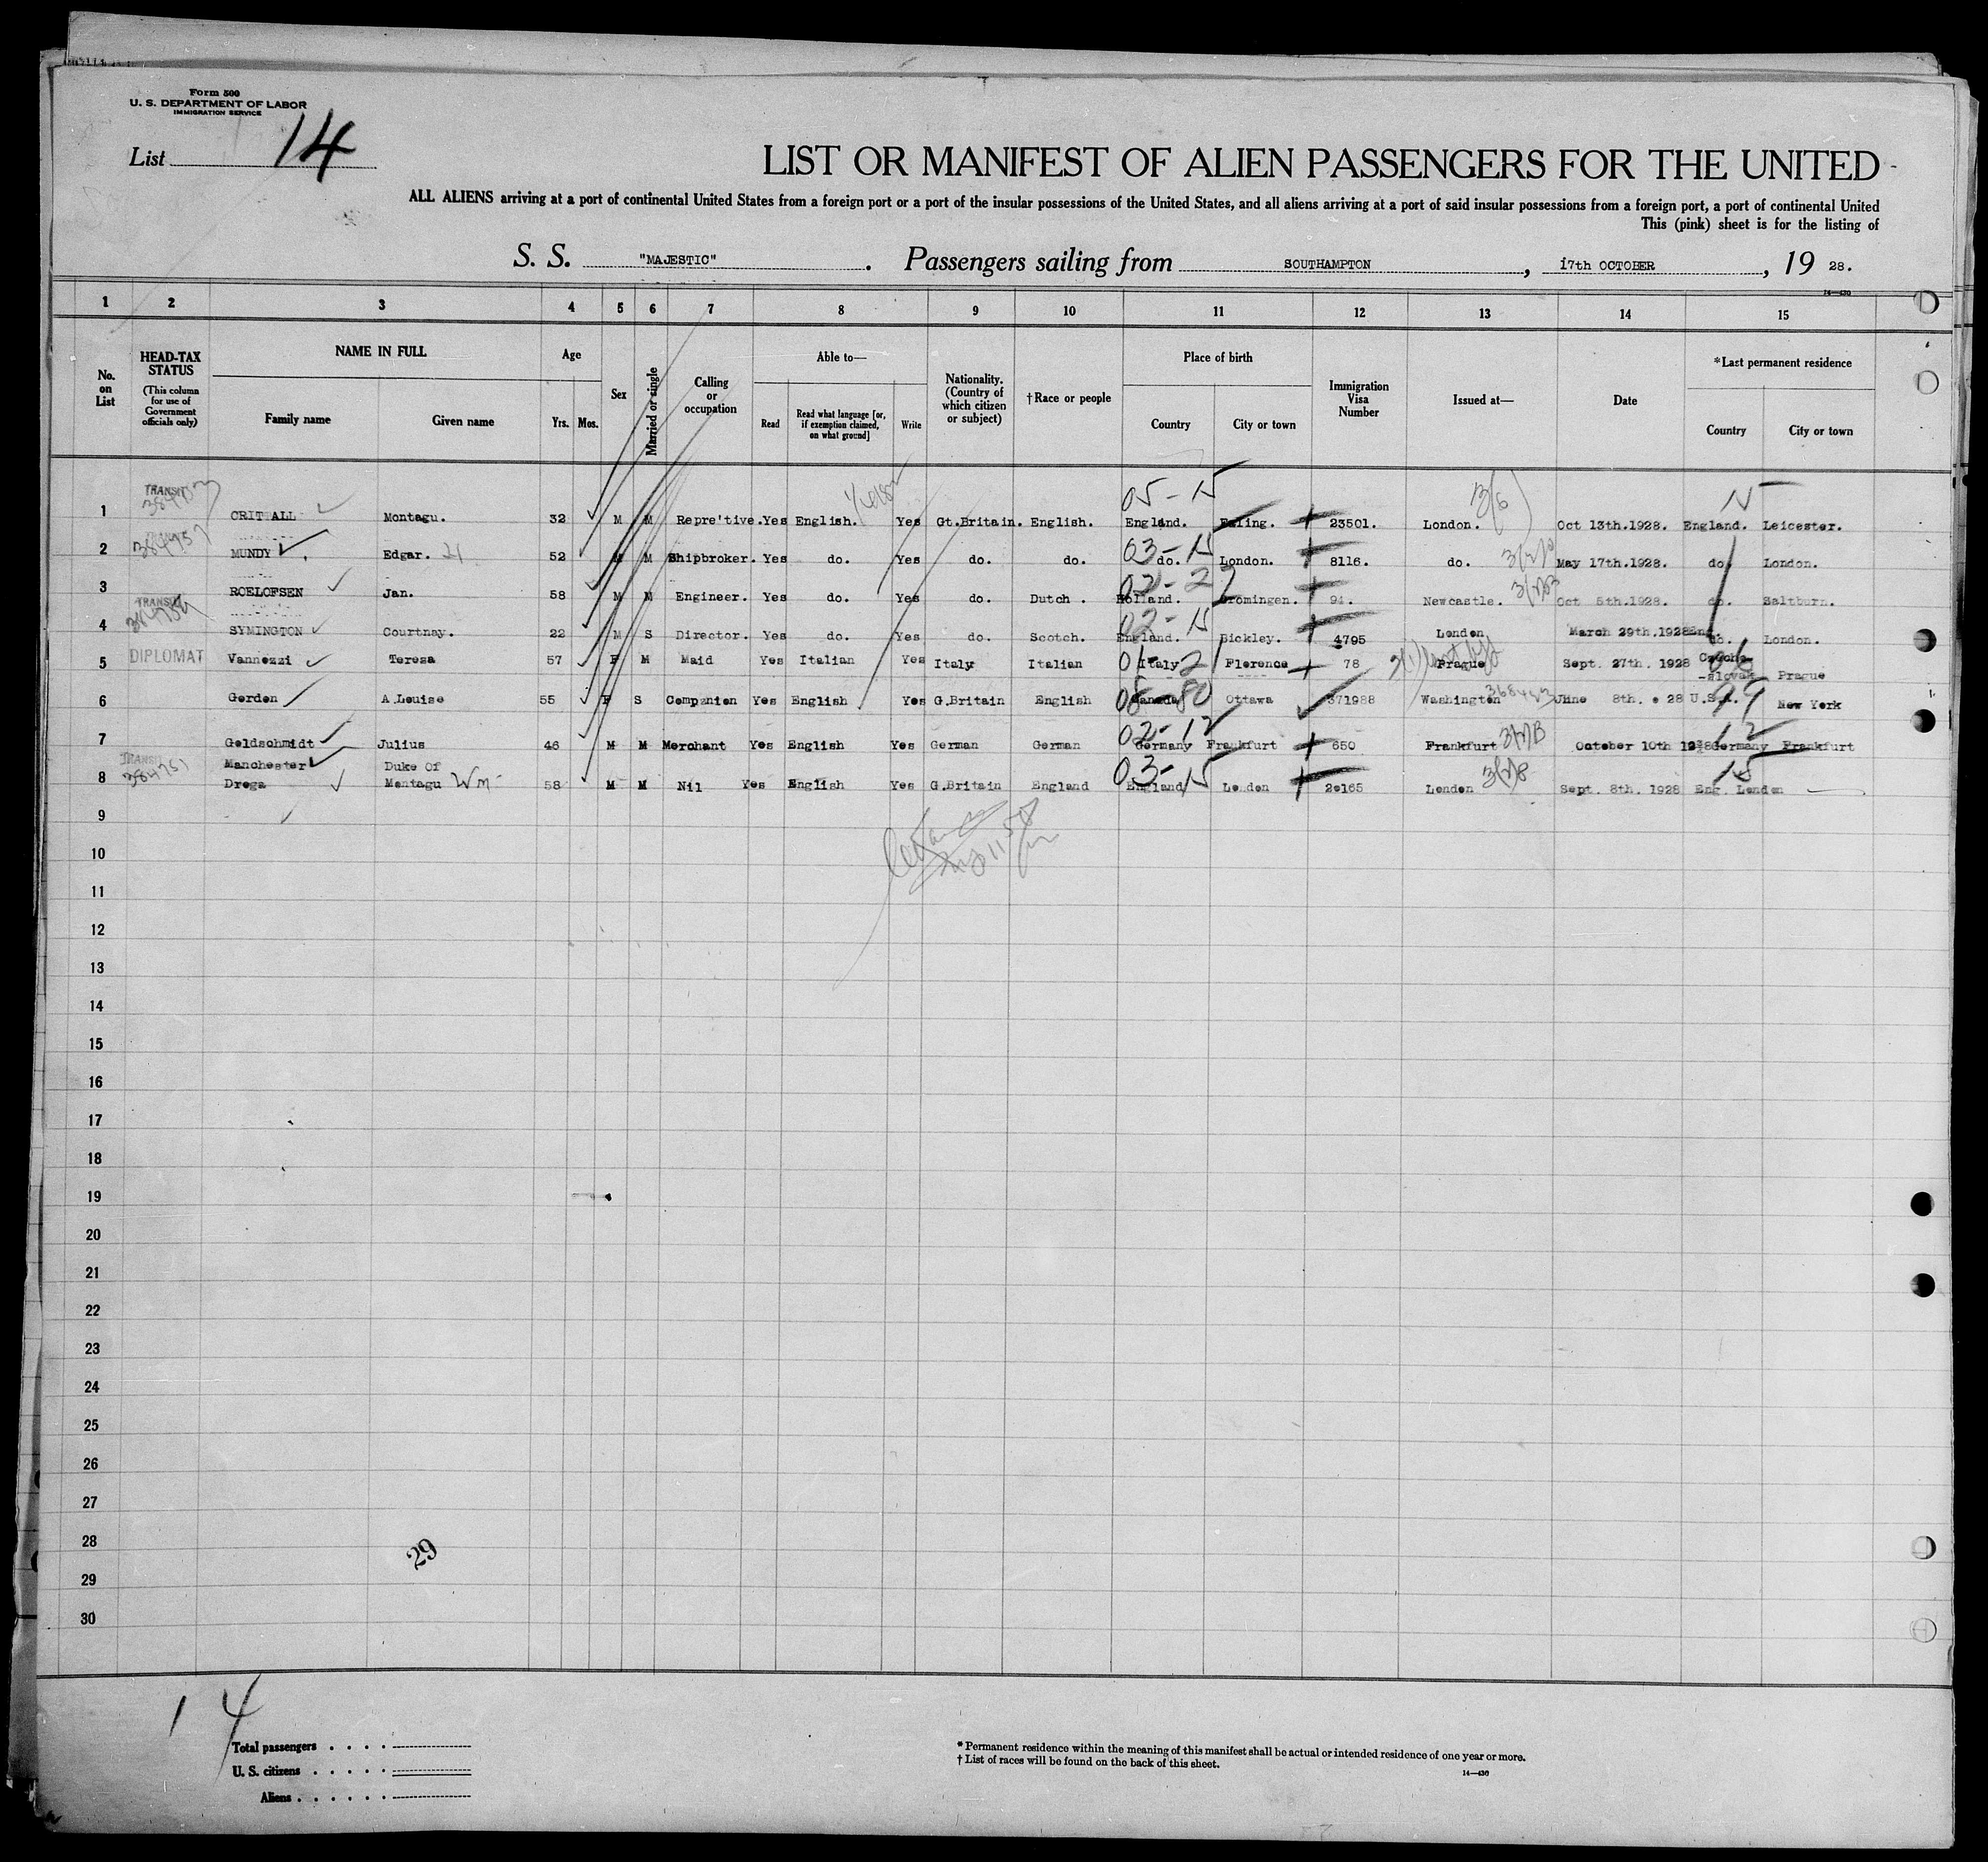 Form 500
U. S. DEPARTMENT OF LABOR
IMMIGRATION SERVICE
List 14
LIST OR MANIFEST OF ALIEN PASSENGERS FOR THE UNITED
ALL ALIENS arriving at a port of continental United States from a foreign port or a port of the insular possessions of the United States, and all aliens arriving at a port of said insular possessions from a foreign port, a port of continental United
This (pink) sheet is for the listing of
S. S. "MAJESTIC". Passengers sailing from SOUTHAMPTON, 17th OCTOBER, 19 28.
14—430
1 2 3 4 5 6 7 8 9 10 11 12 13 14 15
No. on List
HEAD-TAX STATUS
(This column for use of Government officials only)
NAME IN FULL
Family name Given name
Age
Yrs. Mos.
Sex
Married or single
Calling or occupation
Able to—
Read
Read what language [or, if exemption claimed, on what ground]
Write
Nationality. (Country of which citizen or subject)
†Race or people
Place of birth
Country City or town
Immigration Visa Number
Issued at—
Date
*Last permanent residence
Country City or town
TRANSIT
05-15 3(6) 15
1 CRIT ALL Montagu. 32 M M Repre'tive. Yes English. Yes Gt.Britain. English. England. Ealing. 23501. London. Oct 13th.1928. England. Leicester.
384751 03-15
2 MUNDY. Edgar. H 52 M M Shipbroker. Yes do. Yes do. do. do. London. 8116. do. May 17th.1928. do. London.
3 ROELOFSEN Jan. 58 M M Engineer. Yes do. Yes do. Dutch. Holland. Gromingen. 94. Newcastle. Oct 5th.1928. do. Saltburn.
TRANSIT
02-15
4 SYMINGTON Courtnay. 22 M S Director. Yes do. Yes do. Scotch. England. Bickley. 4795 London March 29th.1928 Eng. do. London.
5 DIPLOMAT Vannozzi Teresa 57 F M Maid Yes Italian Yes Italy Italian Italy Florence 78 Prague Sept. 27th. 1928 Czecho-
-slovak Prague
6 Gordon A.Louise 55 F S Companion Yes English Yes G.Britain English Canada Ottawa 371988 Washington June 8th. 28 U.S.A. New York
02-12 12
7 Goldschmidt Julius 46 M M Merchant Yes English Yes German German Germany Frankfurt 650 Frankfurt October 10th 1928 Germany Frankfurt
TRANSIT
384751
Manchester Duke Of
03-15 15
8 Drega Montagu Wm 58 M M Nil Yes English Yes G.Britain England England London 20165 London Sept. 8th. 1928 Eng. London
9
10
11
12
13
14
15
16
17
18
19
20
21
22
23
24
25
26
27
28
29
29
30
14
Total passengers
U. S. citizens
Aliens
* Permanent residence within the meaning of this manifest shall be actual or intended residence of one year or more.
† List of races will be found on the back of this sheet.
14—430